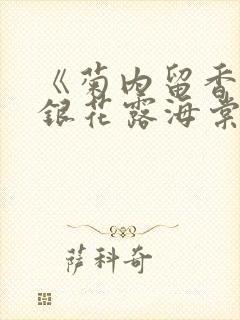 《菊内留香
银花露海棠
萨科奇